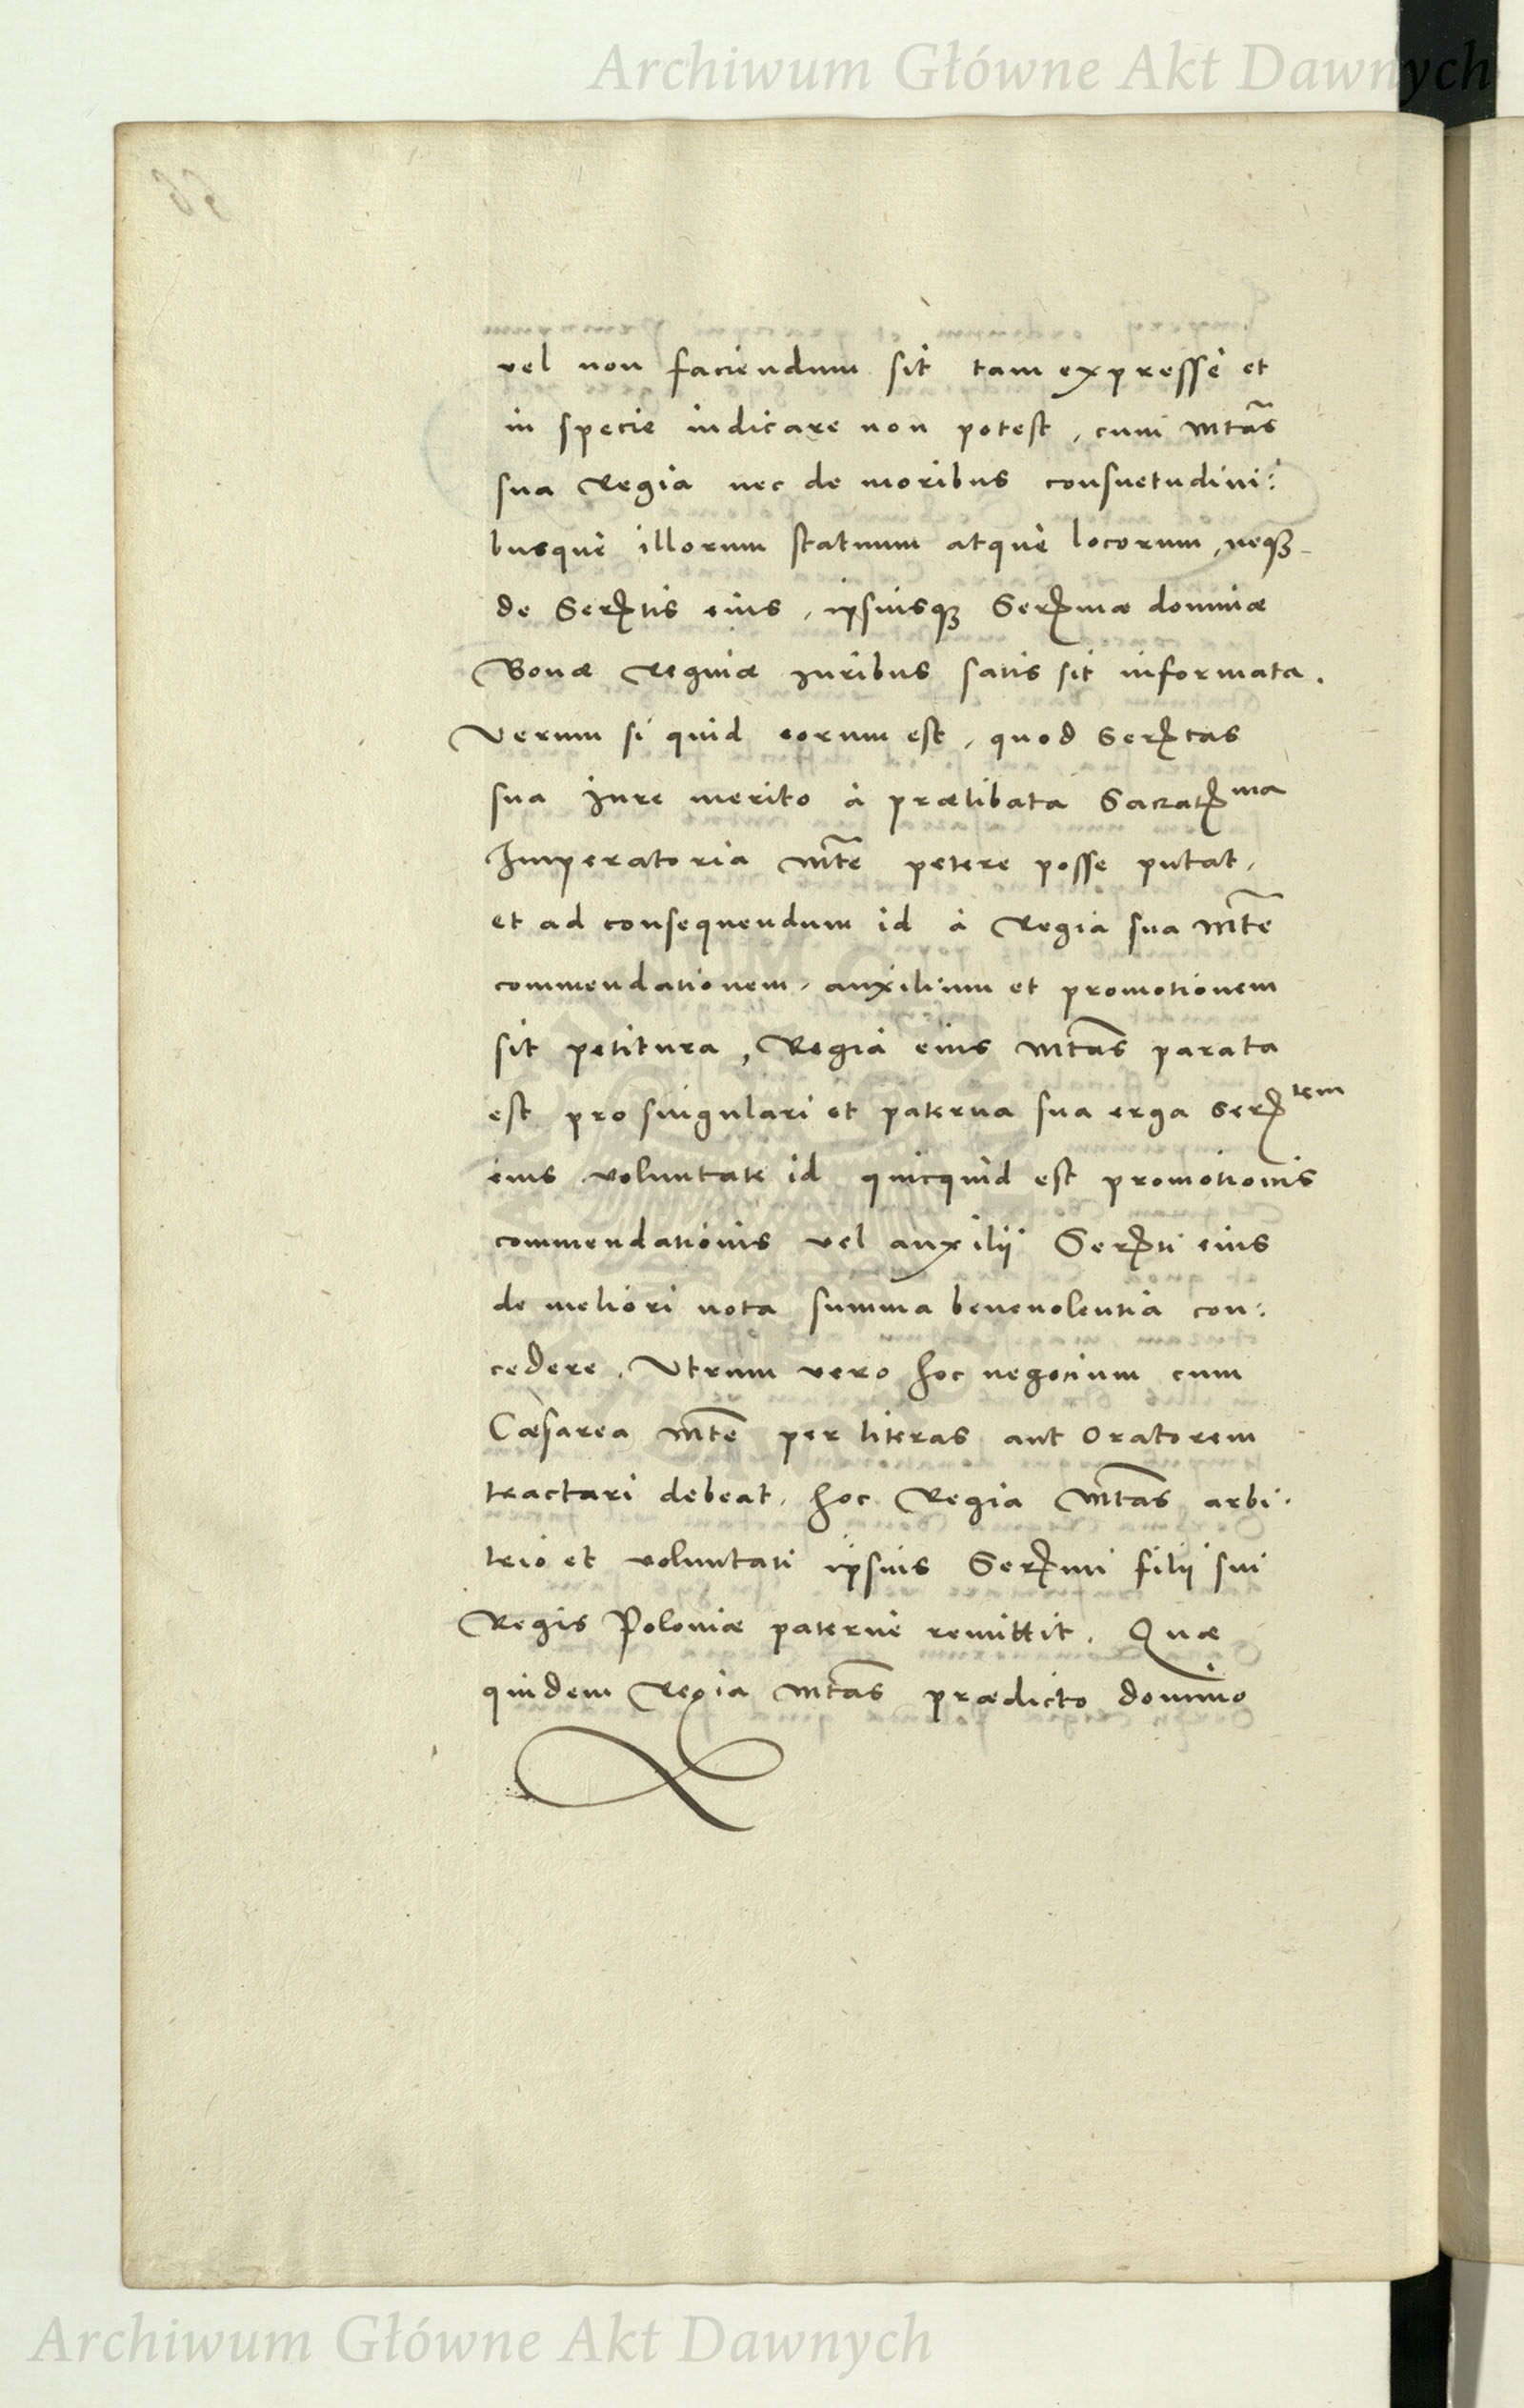 Archiwum Główne Akt Dawnych
vel non faciendum sit tam expressè et
in specie indicare non potest, cum Mtãs
sua Regia nec de moribus consuetudini:
busque illorum statuum atque locorum, neqꝫ
de Serꝑtis eius, ipsiusqꝫ Serꝑmæ dominæ
Bonæ Reginæ juribus satis sit informata.
Verum si quid eorum est, quod Serꝑtas
sua jure merito à prælibata Sacratꝑma
Imperatoria Mte͂ petere posse putat,
et ad consequendum id à Regia sua Mte͂
commendationem, auxilium et promotionem
sit petitura, Regia eius Mtãs parata
est pro singulari et paterna sua erga Serꝑtem
eius voluntate id quicquid est promotionis
commendationis vel auxilii Serꝑti eius
de meliori nota summa benevolentia con:
cedere. Utrum vero hoc negocium cum
Cæsarea Mte͂ per literas aut Oratorem
tractari debeat, hoc Regia Mtãs arbi:
trio et voluntati ipsius Serꝑmi filii sui
Regis Poloniæ paternè remittit. Quæ
quidem Regia Mtãs prædicto domino
Archiwum Główne Akt Dawnych